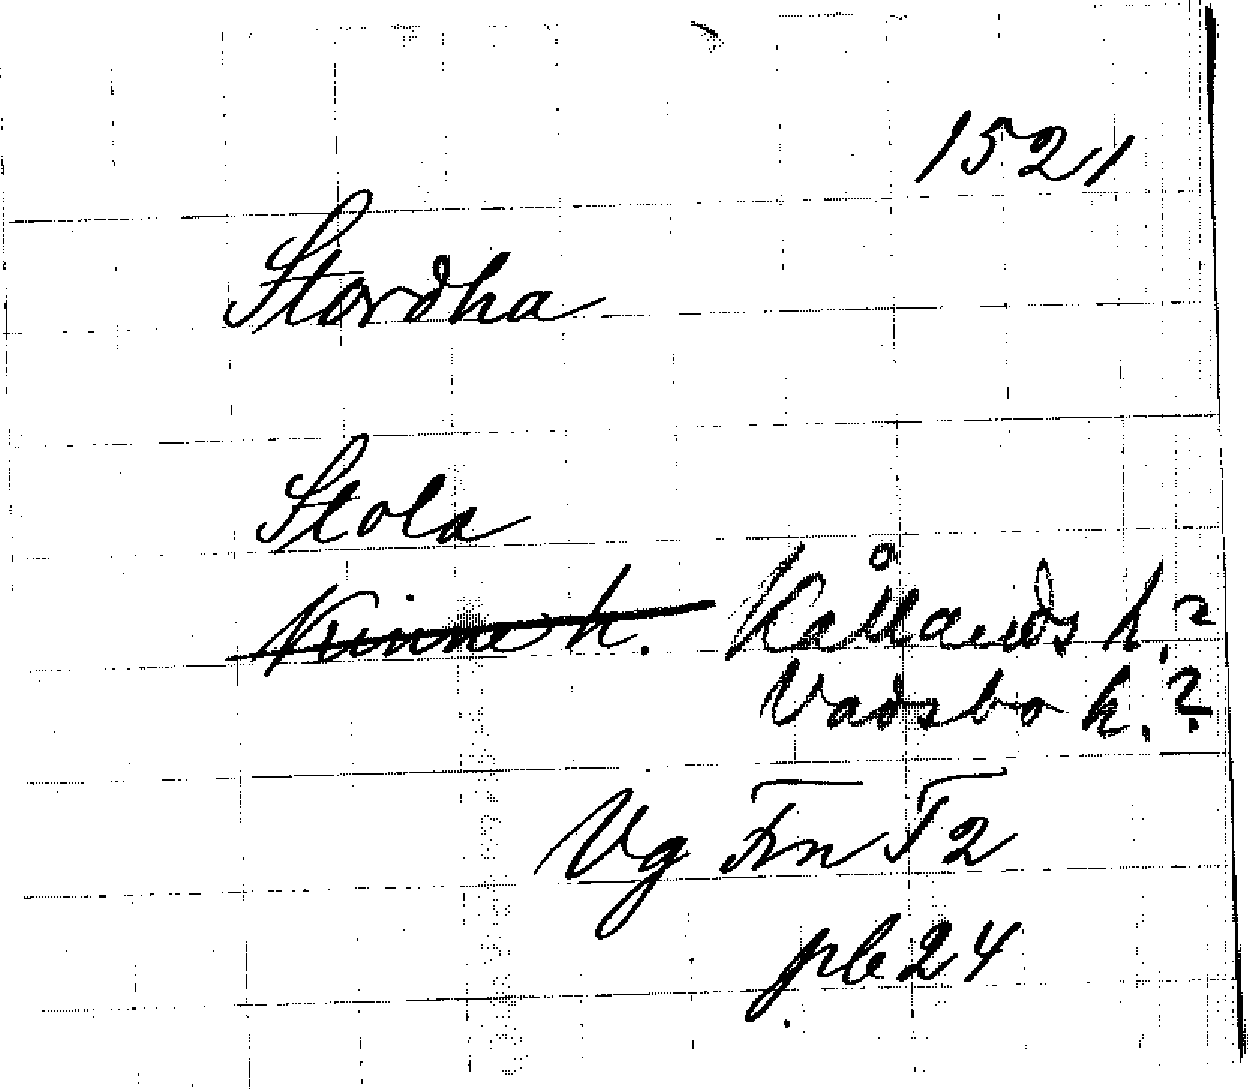 1521
Stordha
Stola
Kinne h. Kållands h.?
Vadsbo h.?
Vg Fnr F2
pb 24